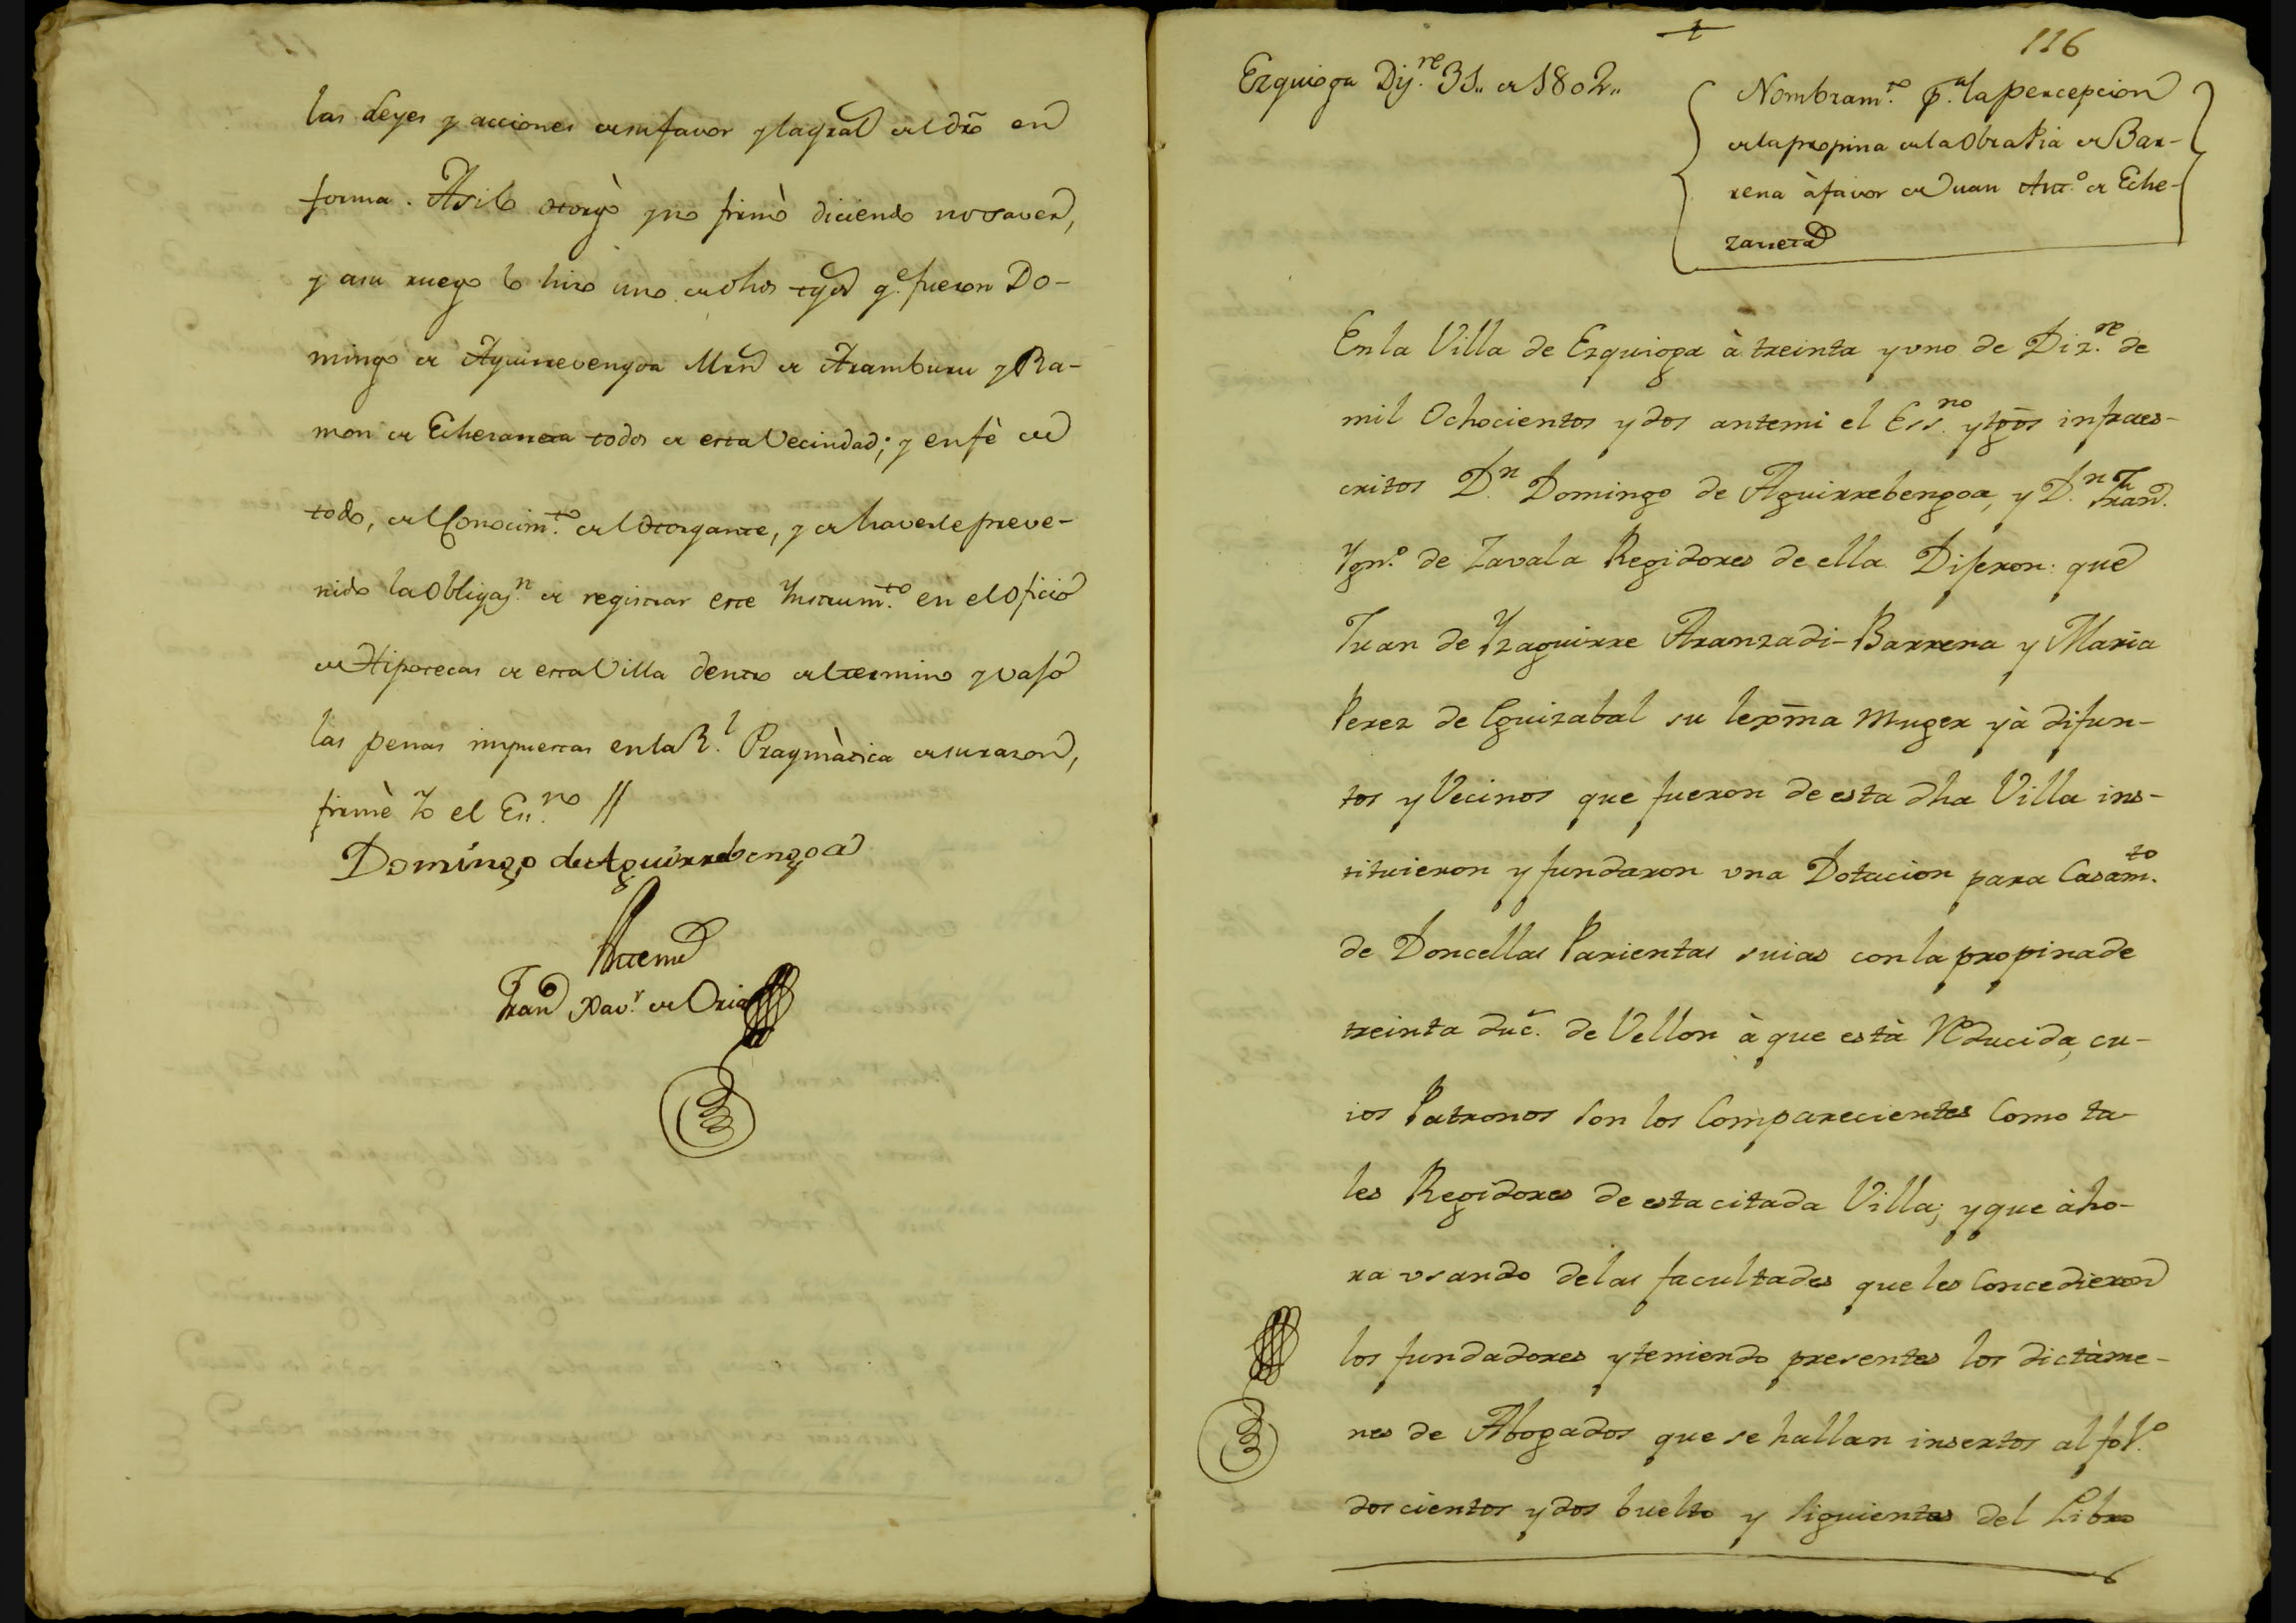 las Leyes y acciones de su favor y la gral del dro en
forma. Asi lo otorgò y no firmò diciendo no saver,
y a su ruego lo hizo uno de dhos tgos q.e fueron Do-
mingo de Aguirrevengoa Mrn de Aramburu y Ra-
mon de Echezarreta todos de esta Vecindad; y en fè de
todo, del Conocim.to del otorgante, y de haverle preve-
nido la Obligaz.n de registrar este Ynstrum.to en el oficio
de Hipotecas de esta Villa dentro del termino y vajo
las penas impuestas en la R.l Pragmàtica de su razon,
firmè Yo el Ess.no //
Domingo de Aguirrebengoa
Antemi
Fran Xav.r de Oria
116
Ezquioga Diz.re 31,, de 1802,,
Nombram.to p.a la percepcion
de la propina de la Obra Pia de Bar-
rena à favor de Juan Ant.o de Eche-
zarreta
En la Villa de Ezquioga à treinta y uno de Diz.re de
mil Ochocientos y dos antemi el Ess.no y tgos infraes-
critos D.n Domingo de Aguirrebengoa, y D.n Fran.
Ygn.o de Zavala Regidores de ella Dijeron: que
Juan de Yzaguirre Aranzadi-Barrena y Maria
Perez de Eguizabal su lexma Muger yà difun-
tos y Vecinos que fueron de esta dha Villa ins-
tituieron y fundaron una Dotacion para Casam.to
de Doncellas Parientas suias con la propina de
treinta duc. de Vellon à que està Reducida, cu-
ios Patronos son los Comparecientes Como ta-
les Regidores de esta citada Villa; y que àho-
ra usando de las facultades que les Concedieron
los fundadores y teniendo presentes los dictàme-
nes de Abogados que se hallan insertos al fol.o
doscientos y dos buelto y siguientes del Libro